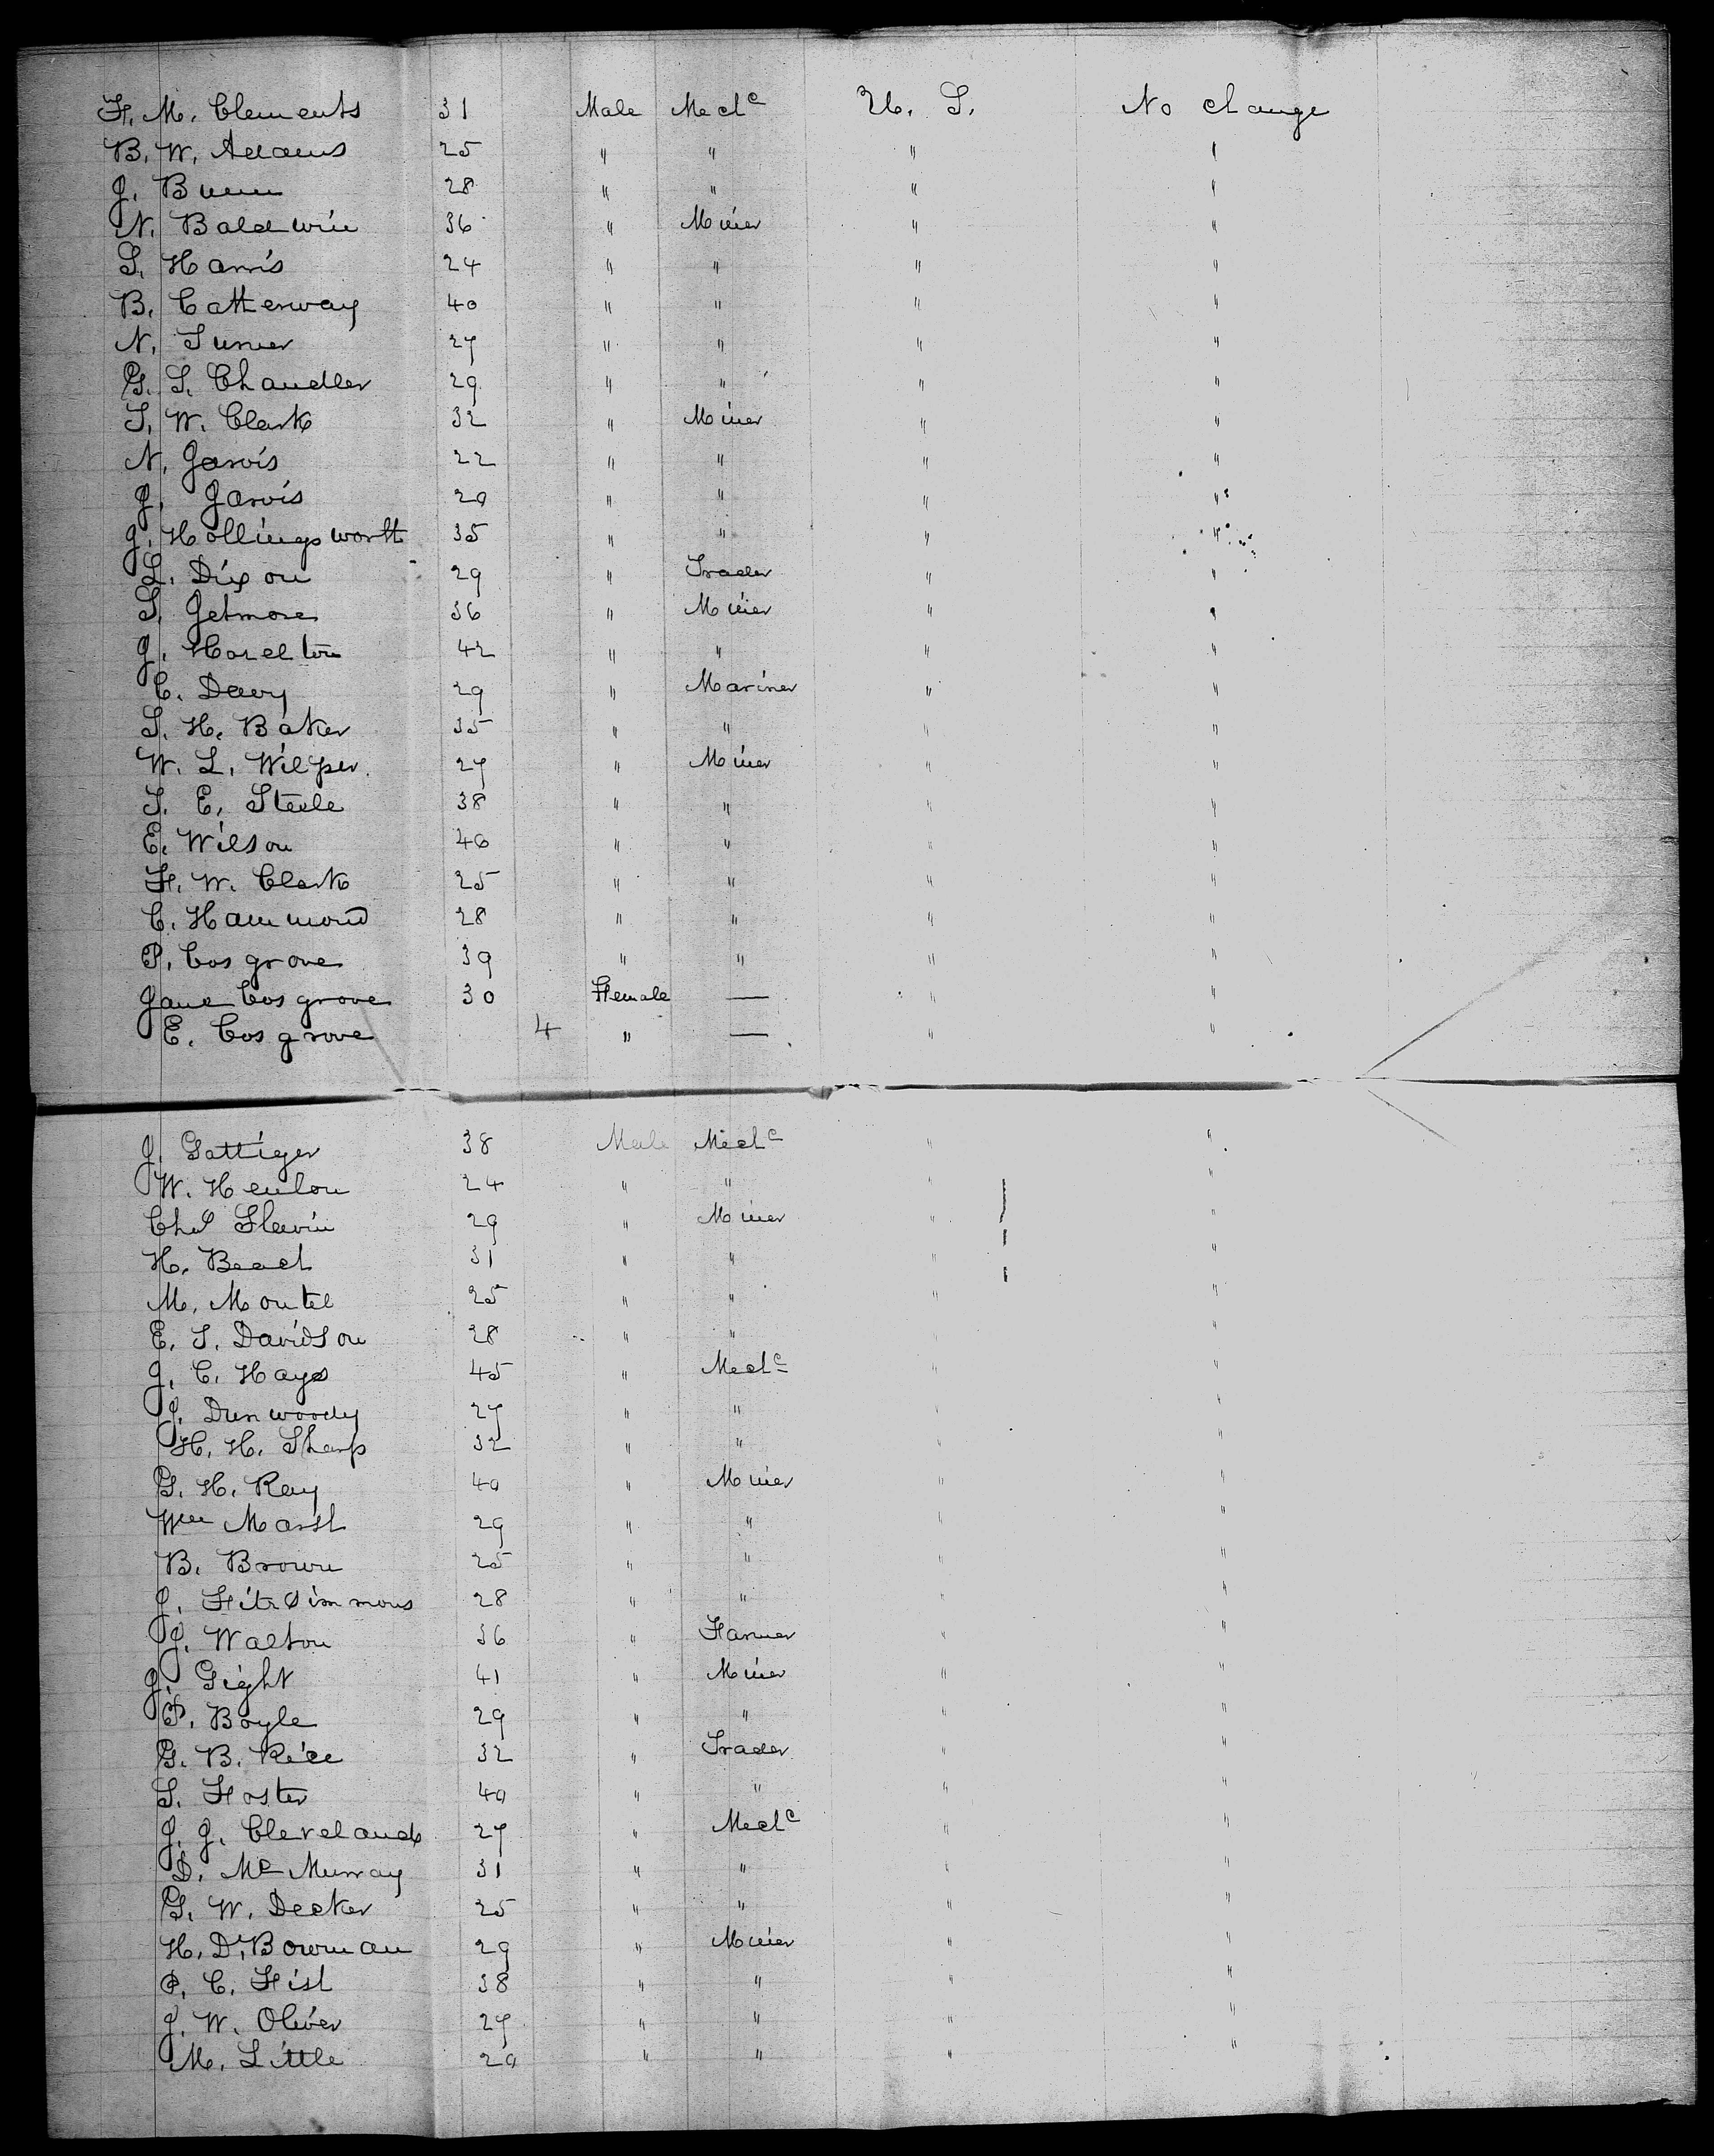 F. M. Clements 31 Male Mechc U. S. No change
B. W. Adams 25 " " " "
J. Bunn 28 " " " "
N. Baldwin 36 " Miner " "
S. Harris 24 " " " "
B. Catterway 40 " " " "
N. Turner 27 " " " "
G. S. Chandler 29 " " " "
T. W. Clark 32 " Miner " "
N. Jarvis 22 " " " "
J. Jarvis 20 " " " "
J. Hollingsworth 35 " " " "
L. Dixon 29 " Trader " "
S. Getmore 36 " Miner " "
J. Hazelton 42 " " " "
C. Davy 29 " Mariner " "
S. H. Baker 35 " " " "
W. L. 27 " Miner " "
T. E. Steele 38 " " " "
E. Wilson 40 " " " "
F. W. Clark 25 " " " "
C. Hammond 28 " " " "
P. Cosgrove 39 " " " "
Jane Cosgrove 30 Female — " "
E. Cosgrove 4 " — " "
J. Gattiger 38 Male Mechc " "
W. Henlon 24 " " " "
Chs Slavin 29 " Miner " "
H. Beach 31 " " " "
M. Montel 25 " " " "
E. T. Davidson 28 " " " "
J. C. Hays 45 " Mechc " "
J. Dunwoody 27 " " " "
H. H. Sharp 32 " " " "
G. H. Ray 40 " Miner " "
Wm Marsh 29 " " " "
B. Brown 25 " " " "
J. Fitzsimmons 28 " " " "
J. Walton 36 " Farmer " "
J. Gight 41 " Miner " "
P. Boyle 29 " " " "
G. B. Rice 32 " Trader " "
S. Foster 40 " " " "
J. J. Cleveland 27 " Mechc " "
D. McMurray 31 " " " "
G. W. Decker 25 " " " "
H. D. Bowman 29 " Miner " "
P. C. Fish 38 " " " "
J. W. Oliver 27 " " " "
M. Little 20 " " " "